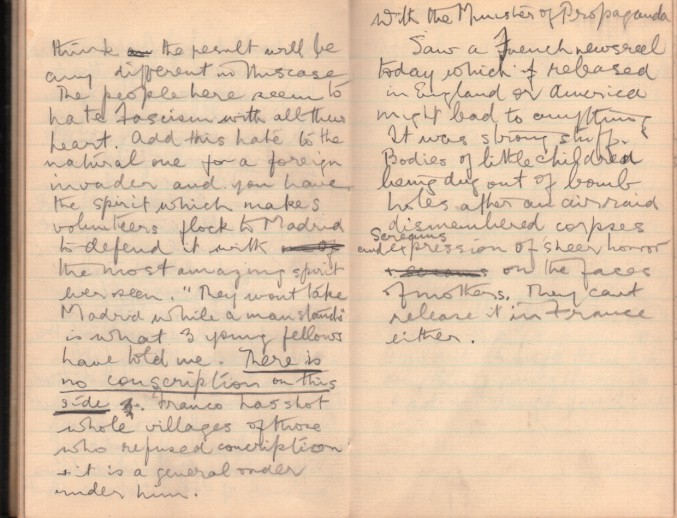 think the result will be
any different in this case
The people here seem to
hate Fascism with all their
heart. Add this hate to the
natural one for a foreign
invader and you have
the spirit which makes
volunteers flock to Madrid
to defend it with
the most amazing spirit
ever seen. "They wont take
Madrid while a man stands"
is what 3 young fellows
have told me. There is
no conscription on this
side. Franco has shot
whole villages of those
who refused conscription
+ it is a general order
under him.
with the Minister of Propaganda
Saw a French newsreel
today which if released
in England or America
might lead to anything.
It was strong stuff.
Bodies of little children
being dug out of bomb
holes after an air raid
dismembered corpses
Screams
and expression of sheer horror
on the faces
of mothers. They cant
release it in France
either.